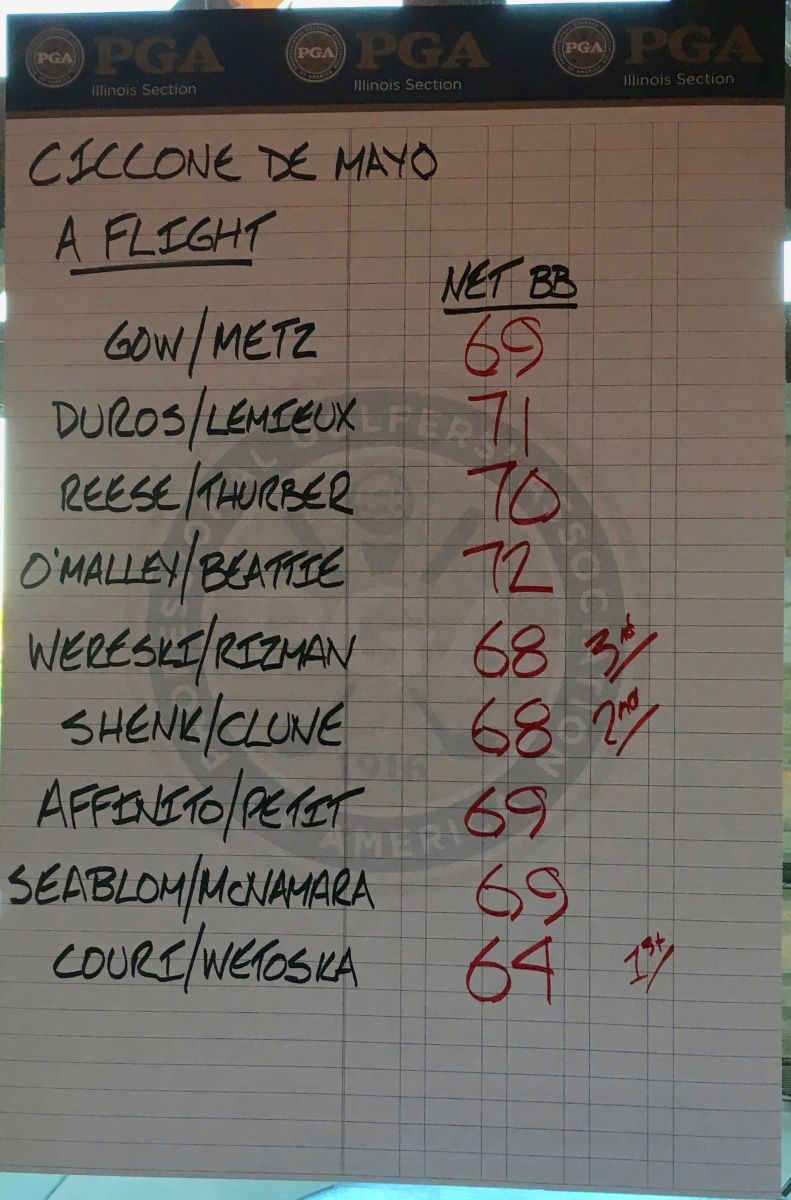 PGA PGA PGA PGA PGA PGA
Illinois Section Illinois Section Illinois Section
CICCONE DE MAYO
A FLIGHT
NET BB
GOW/METZ 69
DUROS/LEMIEUX 71
REESE/THURBER 70
O'MALLEY/BEATTIE 72
WERESKI/RIZMAN 68 3rd/
SHENK/CLUNE 68 2nd/
AFFINITO/PETIT 69
SEABLOM/McNAMARA 69
COURI/WETOSKA 64 1st/
1916